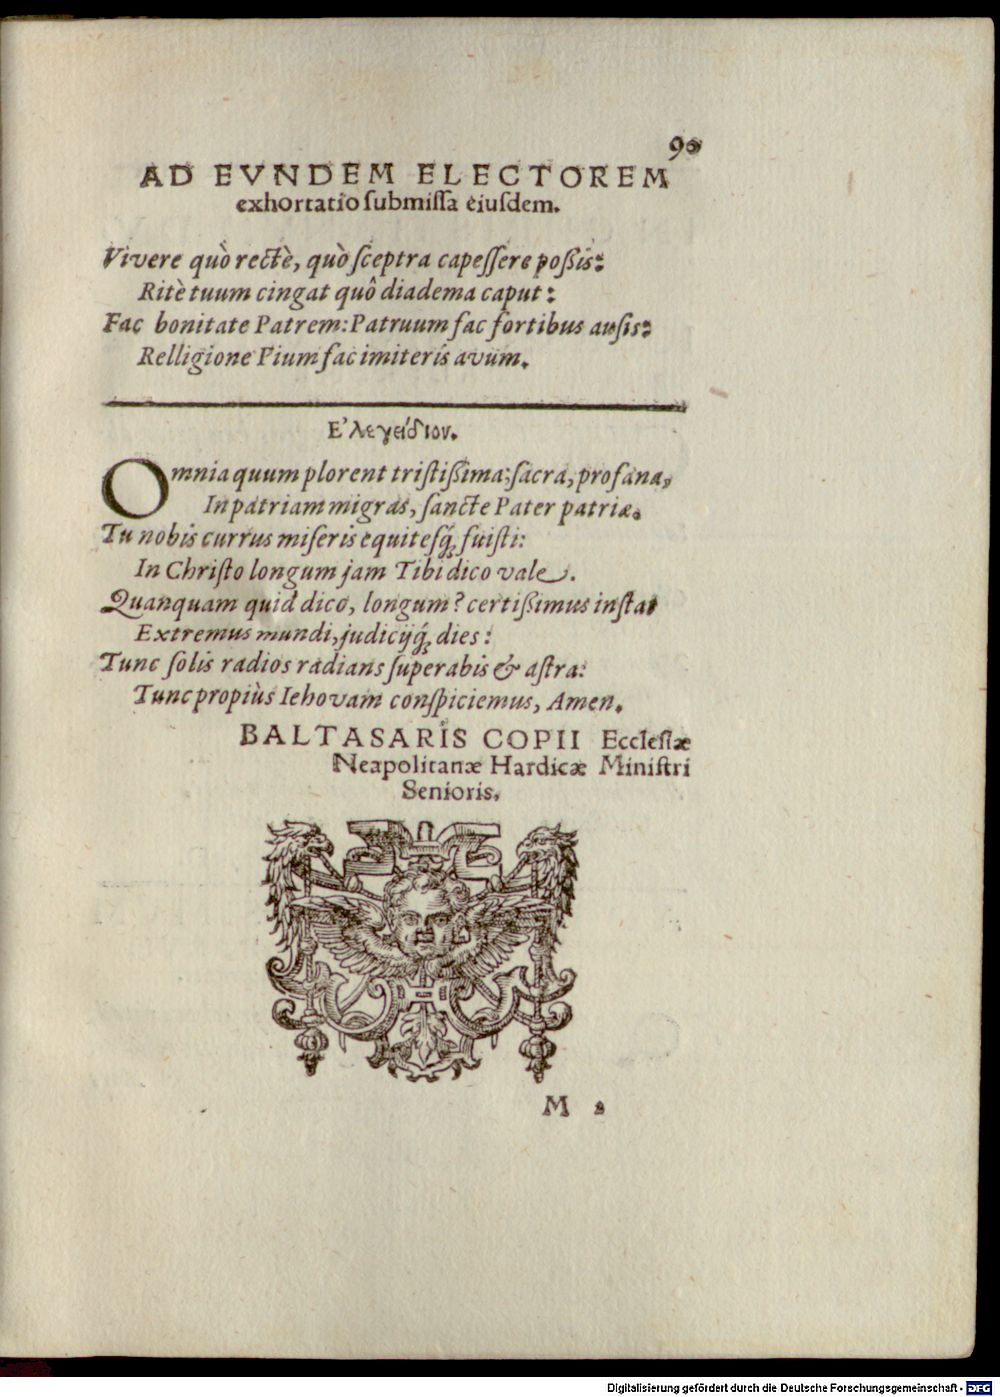 90
AD EVNDEM ELECTOREM
exhortatio ſubmiſſa eiuſdem.
Vivere quò rectè, quò ſceptra capeſſere poßis:
Ritè tuum cingat quô diadema caput:
Fac bonitate Patrem: Patruum fac fortibus auſis:
Relligione Pium fac imiteris avum.
Ε’λεγείδιον.
Omnia quum plorent triſtißima; ſacra, profana,
In patriam migras, ſancte Pater patriæ.
Tu nobis currus miſeris equiteſq́; fuiſti:
In Chriſto longum jam Tibi dico vale.
Quanquam quid dico, longum? certißimus inſtat
Extremus mundi, judicijq́; dies:
Tunc ſolis radios radians ſuperabis & aſtra:
Tunc propiùs Iehovam conſpiciemus, Amen.
BALTASARIS COPII Eccleſiæ
Neapolitanæ Hardicæ Miniſtri
Senioris.
M 2
Digitalisierung gefördert durch die Deutsche Forschungsgemeinschaft - DFG